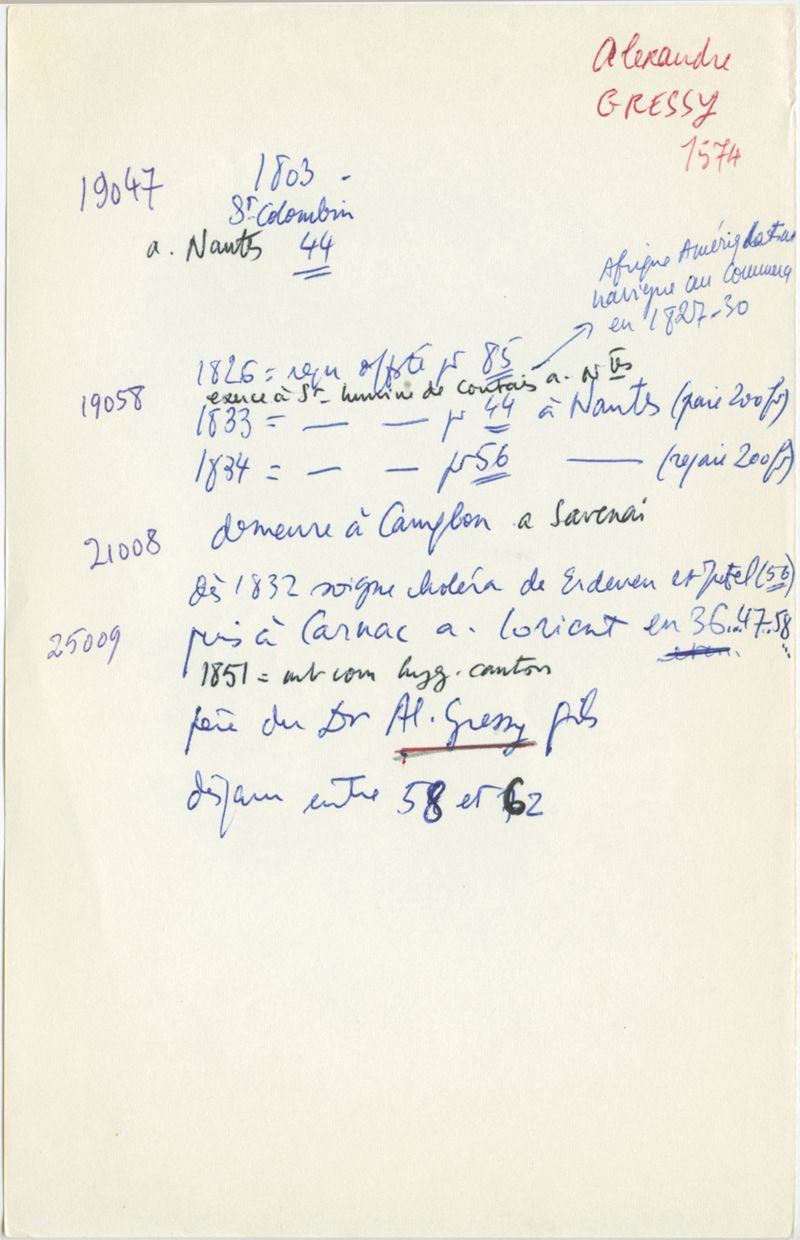 Alexandre
GRESSY
1574
19047 1803 -
St Colombin
a. Nantes 44
Afrique Amériq latine
navigue au Commerce
en 1827-30
1826 = reçu offsté pr 85
19058 exerce à St- Lumine de Coutais a. Ntes
1833 = — — pr 44 à Nantes (paie 200 fr)
1834 = — — pr 56 — (repaie 200 fr)
21008 demeure à Campbon a Savenai
Dès 1832 soigne choléra de Erdeven et (56)
25009 puis à Carnac a. Lorient en 36..47.58
1851 = mb com hyg. canton
père du Dr Al. Gressy fils
disparu entre 58 et 62